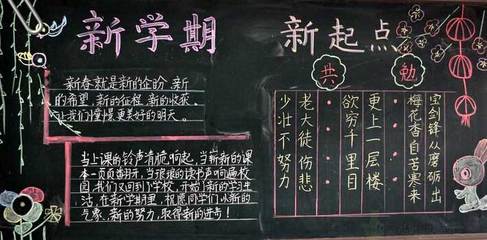 新学期
新春就是新的企盼，新
的希望，新的征程，新的收获。
让我们憧憬更美好的明天。
当上课的铃声清脆响起，当崭新的课
本一页页翻开，当琅琅的读书声响遍校
园，我们又回到了学校，开始了新的学习生
活，在新学期里，祝愿同学们以新的
气象、新的努力，取得新的进步！
新起点
共勉
宝剑锋从磨砺出
梅花香自苦寒来
更上一层楼
欲穷千里目
老大徒伤悲
少壮不努力